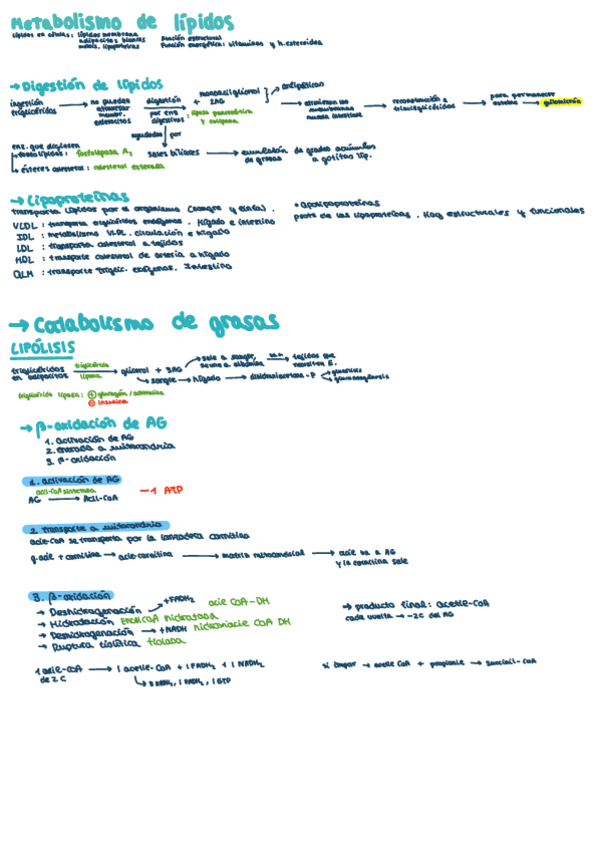 Metabolismo de lípidos
Lípidos en células: lípidos membrana función estructural
adipocitos blancos función energética: vitaminas y h. esteroidea
metab. lipoproteínas
→ Digestión de lípidos
ingestión triglicéridos → no pueden atravesar membr. → digestión por enz digestivas + 2AG } anfipáticos
: lipasa pancreática y colipasa
→ atraviesan las membranas → reconstrucción a → para permanecer
ayudadas por
enz. que digieren
fosfolípidos: fosfolipasa A₂ sales biliares → emulsión de grasas
a gotitas líp.
ésteres colesterol: colesterol esterasa
→ Lipoproteínas
transporta lípidos por el organismo (sangre y linfa).
• Apolipoproteínas
parte de las lipoproteínas. Hay estructurales y funcionales
VLDL: transporta triglicéridos endógenos. Hígado e intestino
IDL: metabolismo VLDL. circulación e hígado
LDL: transporta colesterol a tejidos
HDL: transporte colesterol de arteria a hígado
QLM: transporte triglic. exógenos. Intestino
→ Catabolismo de grasas
LIPÓLISIS
triglicéridos en adipocitos → glicerol + 3AG → sale a sangre, se une a albúmina → tejidos que necesiten E.
triglicérido lipasa
sangre → hígado → dihidroxiacetona-P → glucólisis
gluconeogénesis
triglicérido lipasa: + glucagón / adrenalina
- insulina
→ β-oxidación de AG
1. activación de AG
2. entrada a mitocondria
3. β-oxidación
1. activación de AG
acil-CoA sintetasa
AG → Acil-CoA -1 ATP
2. transporte a mitocondria
acil-CoA se transporta por la lanzadera carnitina
g. acil + carnitina → acil-carnitina → matriz mitocondrial → acil va a AG
y la carnitina sale
3. β-oxidación
→ Deshidrogenación → +FADH₂ acil CoA-DH
→ Hidratación Enoil CoA hidratasa
→ Deshidrogenación → +NADH hidroxiacil CoA DH
→ Ruptura tiolítica tiolasa
→ producto final: acetil-CoA
cada vuelta → -2C del AG
1 acil-CoA de 2C → 1 acetil-CoA + 1 FADH₂ + 1 NADH₂
3 NADH₂, 1 FADH₂, 1 GTP
si impar → acetil CoA + propionil → Succinil-CoA